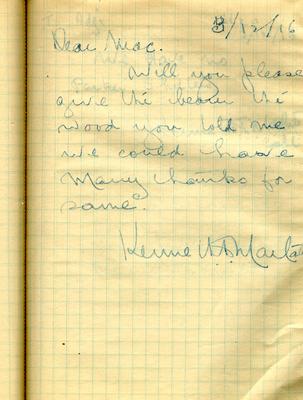 3/12/16
Dear Mac.
Will you please
give the bearer the
wood you told me
we could have
Many thanks for
same.